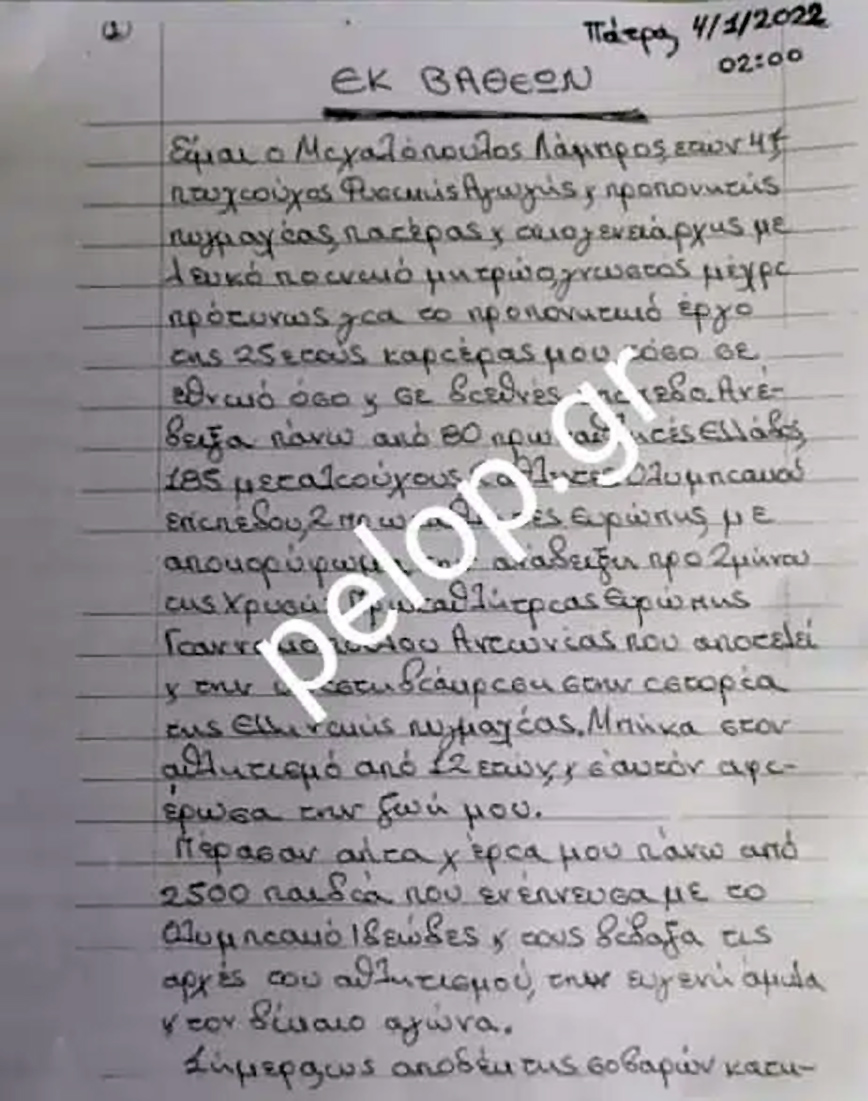 (1)
Πάτρα, 4/1/2022
02:00
ΕΚ ΒΑΘΕΩΝ
Είμαι ο Μεγαλόπουλος Λάμπρος, ετών
πτυχιούχος Φυσικής Αγωγής, κ προπονητής
πυγμαχίας, πατέρας κ οικογενειάρχης με
λευκό ποινικό μητρώο, γνωστός μέχρι
πρότινως για το προπονητικό έργο
της 25ετούς καριέρας μου τόσο σε
εθνικό όσο κ σε διεθνές επίπεδο. Ανέ-
δειξα πάνω από 80 πρωταθλητές Ελλάδος,
185 μεταλιούχους, αθλητές Ολυμπιακού
επιπέδου, 2 πρωταθλητές Ευρώπης με
αποκορύφωμα την ανάδειξη προ 2μήνου
της Χρυσής Πρωταθλήτριας Ευρώπης
Γιαννακοπούλου Αντωνίας που αποτελεί
κ την μέγιστη διάκριση στην ιστορία
της Ελληνικής πυγμαχίας. Μπήκα στον
αθλητισμό από 12 ετών, κ σ'αυτόν αφι-
έρωσα την ζωή μου.
Πέρασαν απ'τα χέρια μου πάνω από
2500 παιδιά που ενέπνευσα με το
Ολυμπιακό Ιδεώδες κ τους δίδαξα τις
αρχές του αθλητισμού, την ευγενή άμιλα
κ τον δίκαιο αγώνα.
Σήμερα, ως αποδέκτης σοβαρών κατη-
pelop.gr